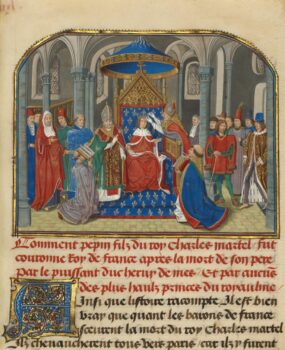 Comment pepin filz du roy Charles martel fut
couronne Roy de france apres la mort de son pere
Par le puissant duc heruy de mes Et par aucuns
des plus haulz princes du royaulme
Ainsi que listoire racompte Il est bien
vray que quant les barons de france
sceurent la mort du roy Charles martel
Ilz cheuaucherent tous vers paris car ilz y furent